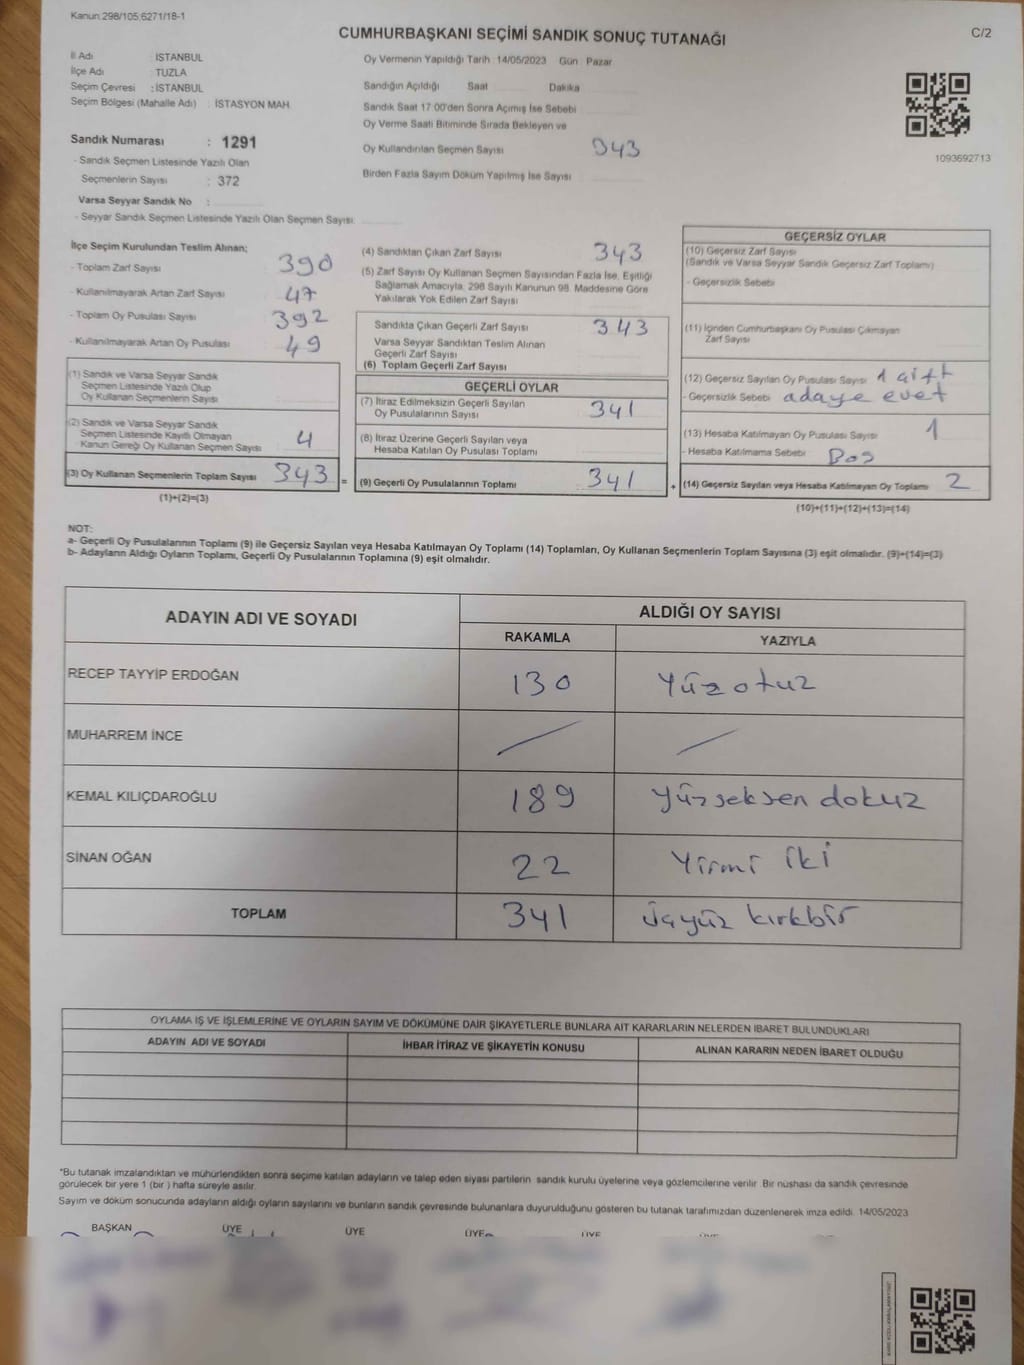 Kanun:298/105;6271/18-1
CUMHURBAŞKANI SEÇİMİ SANDIK SONUÇ TUTANAĞI
C/2
İl Adı : İSTANBUL
İlçe Adı : TUZLA
Seçim Çevresi : İSTANBUL
Seçim Bölgesi (Mahalle Adı) : İSTASYON MAH.
Oy Vermenin Yapıldığı Tarih : 14/05/2023 Gün : Pazar
Sandığın Açıldığı Saat Dakika
Sandık Saat 17:00'den Sonra Açımış İse Sebebi
Oy Verme Saati Bitiminde Sırada Bekleyen ve
Oy Kullandırılan Seçmen Sayısı 343
Birden Fazla Sayım Döküm Yapılmış İse Sayısı
1093692713
Sandık Numarası : 1291
- Sandık Seçmen Listesinde Yazılı Olan
Seçmenlerin Sayısı : 372
Varsa Seyyar Sandık No :
- Seyyar Sandık Seçmen Listesinde Yazılı Olan Seçmen Sayısı:
İlçe Seçim Kurulundan Teslim Alınan;
- Toplam Zarf Sayısı 390
- Kullanılmayarak Artan Zarf Sayısı 47
- Toplam Oy Pusulası Sayısı 392
- Kullanılmayarak Artan Oy Pusulası 49
(1) Sandık ve Varsa Seyyar Sandık
Seçmen Listesinde Yazılı Olup
Oy Kullanan Seçmenlerin Sayısı
(2) Sandık ve Varsa Seyyar Sandık
Seçmen Listesinde Kayıtlı Olmayan
Kanun Gereği Oy Kullanan Seçmen Sayısı 4
(3) Oy Kullanan Seçmenlerin Toplam Sayısı 343 =
(1)+(2)=(3)
(4) Sandıktan Çıkan Zarf Sayısı 343
(5) Zarf Sayısı Oy Kullanan Seçmen Sayısından Fazla İse, Eşitliği
Sağlamak Amacıyla, 298 Sayılı Kanunun 98. Maddesine Göre
Yakılarak Yok Edilen Zarf Sayısı
Sandıkta Çıkan Geçerli Zarf Sayısı 343
Varsa Seyyar Sandıktan Teslim Alınan
Geçerli Zarf Sayısı
(6) Toplam Geçerli Zarf Sayısı
GEÇERLİ OYLAR
(7) İtiraz Edilmeksizin Geçerli Sayılan
Oy Pusulalarının Sayısı 341
(8) İtiraz Üzerine Geçerli Sayılan veya
Hesaba Katılan Oy Pusulası Toplamı
(9) Geçerli Oy Pusulalarının Toplamı 341 +
GEÇERSİZ OYLAR
(10) Geçersiz Zarf Sayısı
(Sandık ve Varsa Seyyar Sandık Geçersiz Zarf Toplamı)
- Geçersizlik Sebebi
(11) İçinden Cumhurbaşkanı Oy Pusulası Çıkmayan
Zarf Sayısı
(12) Geçersiz Sayılan Oy Pusulası Sayısı 1 çift
- Geçersizlik Sebebi adaye evet
(13) Hesaba Katılmayan Oy Pusulası Sayısı 1
- Hesaba Katılmama Sebebi Boş
(14) Geçersiz Sayılan veya Hesaba Katılmayan Oy Toplamı 2
(10)+(11)+(12)+(13)=(14)
NOT:
a- Geçerli Oy Pusulalarının Toplamı (9) ile Geçersiz Sayılan veya Hesaba Katılmayan Oy Toplamı (14) Toplamları, Oy Kullanan Seçmenlerin Toplam Sayısına (3) eşit olmalıdır. (9)+(14)=(3)
b- Adayların Aldığı Oyların Toplamı, Geçerli Oy Pusulalarının Toplamına (9) eşit olmalıdır.
ADAYIN ADI VE SOYADI
ALDIĞI OY SAYISI
RAKAMLA YAZIYLA
RECEP TAYYİP ERDOĞAN 130 Yüzotuz
MUHARREM İNCE
KEMAL KILIÇDAROĞLU 189 Yüzseksen dokuz
SİNAN OĞAN 22 Yirmi iki
TOPLAM 341 üçyüz kırkbir
OYLAMA İŞ VE İŞLEMLERİNE VE OYLARIN SAYIM VE DÖKÜMÜNE DAİR ŞİKAYETLERLE BUNLARA AİT KARARLARIN NELERDEN İBARET BULUNDUKLARI
ADAYIN ADI VE SOYADI
İHBAR İTİRAZ VE ŞİKAYETİN KONUSU
ALINAN KARARIN NEDEN İBARET OLDUĞU
*Bu tutanak imzalandıktan ve mühürlendikten sonra seçime katılan adayların ve talep eden siyasi partilerin sandık kurulu üyelerine veya gözlemcilerine verilir. Bir nüshası da sandık çevresinde
görülecek bir yere 1 (bir ) hafta süreyle asılır.
Sayım ve döküm sonucunda adayların aldığı oyların sayılarını ve bunların sandık çevresinde bulunanlara duyurulduğunu gösteren bu tutanak tarafımızdan düzenlenerek imza edildi. 14/05/2023
BAŞKAN ÜYE ÜYE ÜYE ÜYE